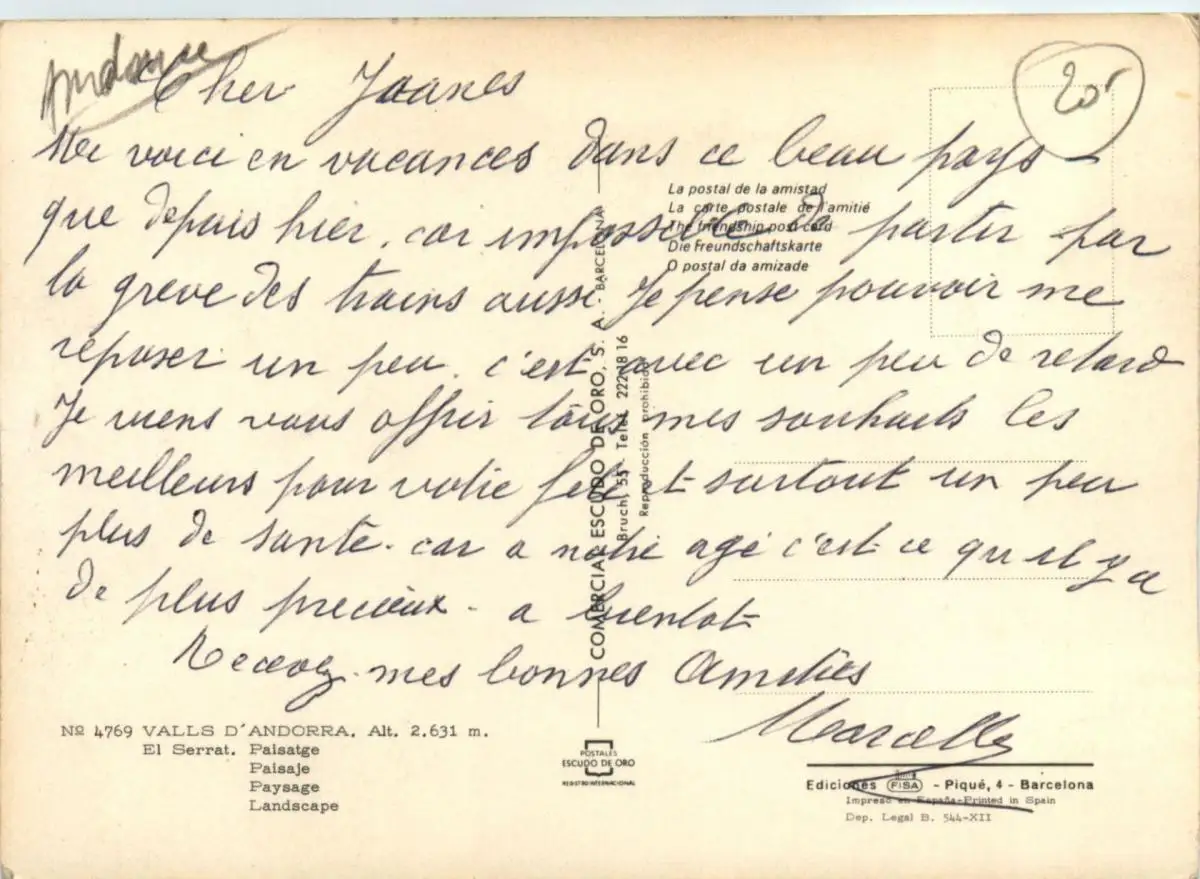 Andorre
20f
Cher Joanes
Me voici en vacances dans ce beau pays -
que depuis hier. car impossible de partir par
la greve des trains aussi Je pense pouvoir me
reposer un peu. c'est avec un peu de retard
Je viens vous offrir tous mes souhaits les
meilleurs pour votre fete et surtout un peu
plus de sante. car a notre age c'est ce qu il y a
de plus precieux - a bientot
Recevez mes bonnes Amitiés
Marcelle
La postal de la amistad
La carte postale de l'amitié
The friendship post card
Die Freundschaftskarte
O postal da amizade
COMERCIAL ESCUDO DE ORO, S. A. - BARCELONA
Bruch, 55 - Teléf. 222 18 16
Reproducción prohibida
Nº 4769 VALLS D'ANDORRA. Alt. 2.631 m.
El Serrat. Paisatge
Paisaje
Paysage
Landscape
POSTALES
ESCUDO DE ORO
REGISTRO INTERNACIONAL
Ediciones FISA - Piqué, 4 - Barcelona
Impreso en España-Printed in Spain
Dep. Legal B. 544-XII